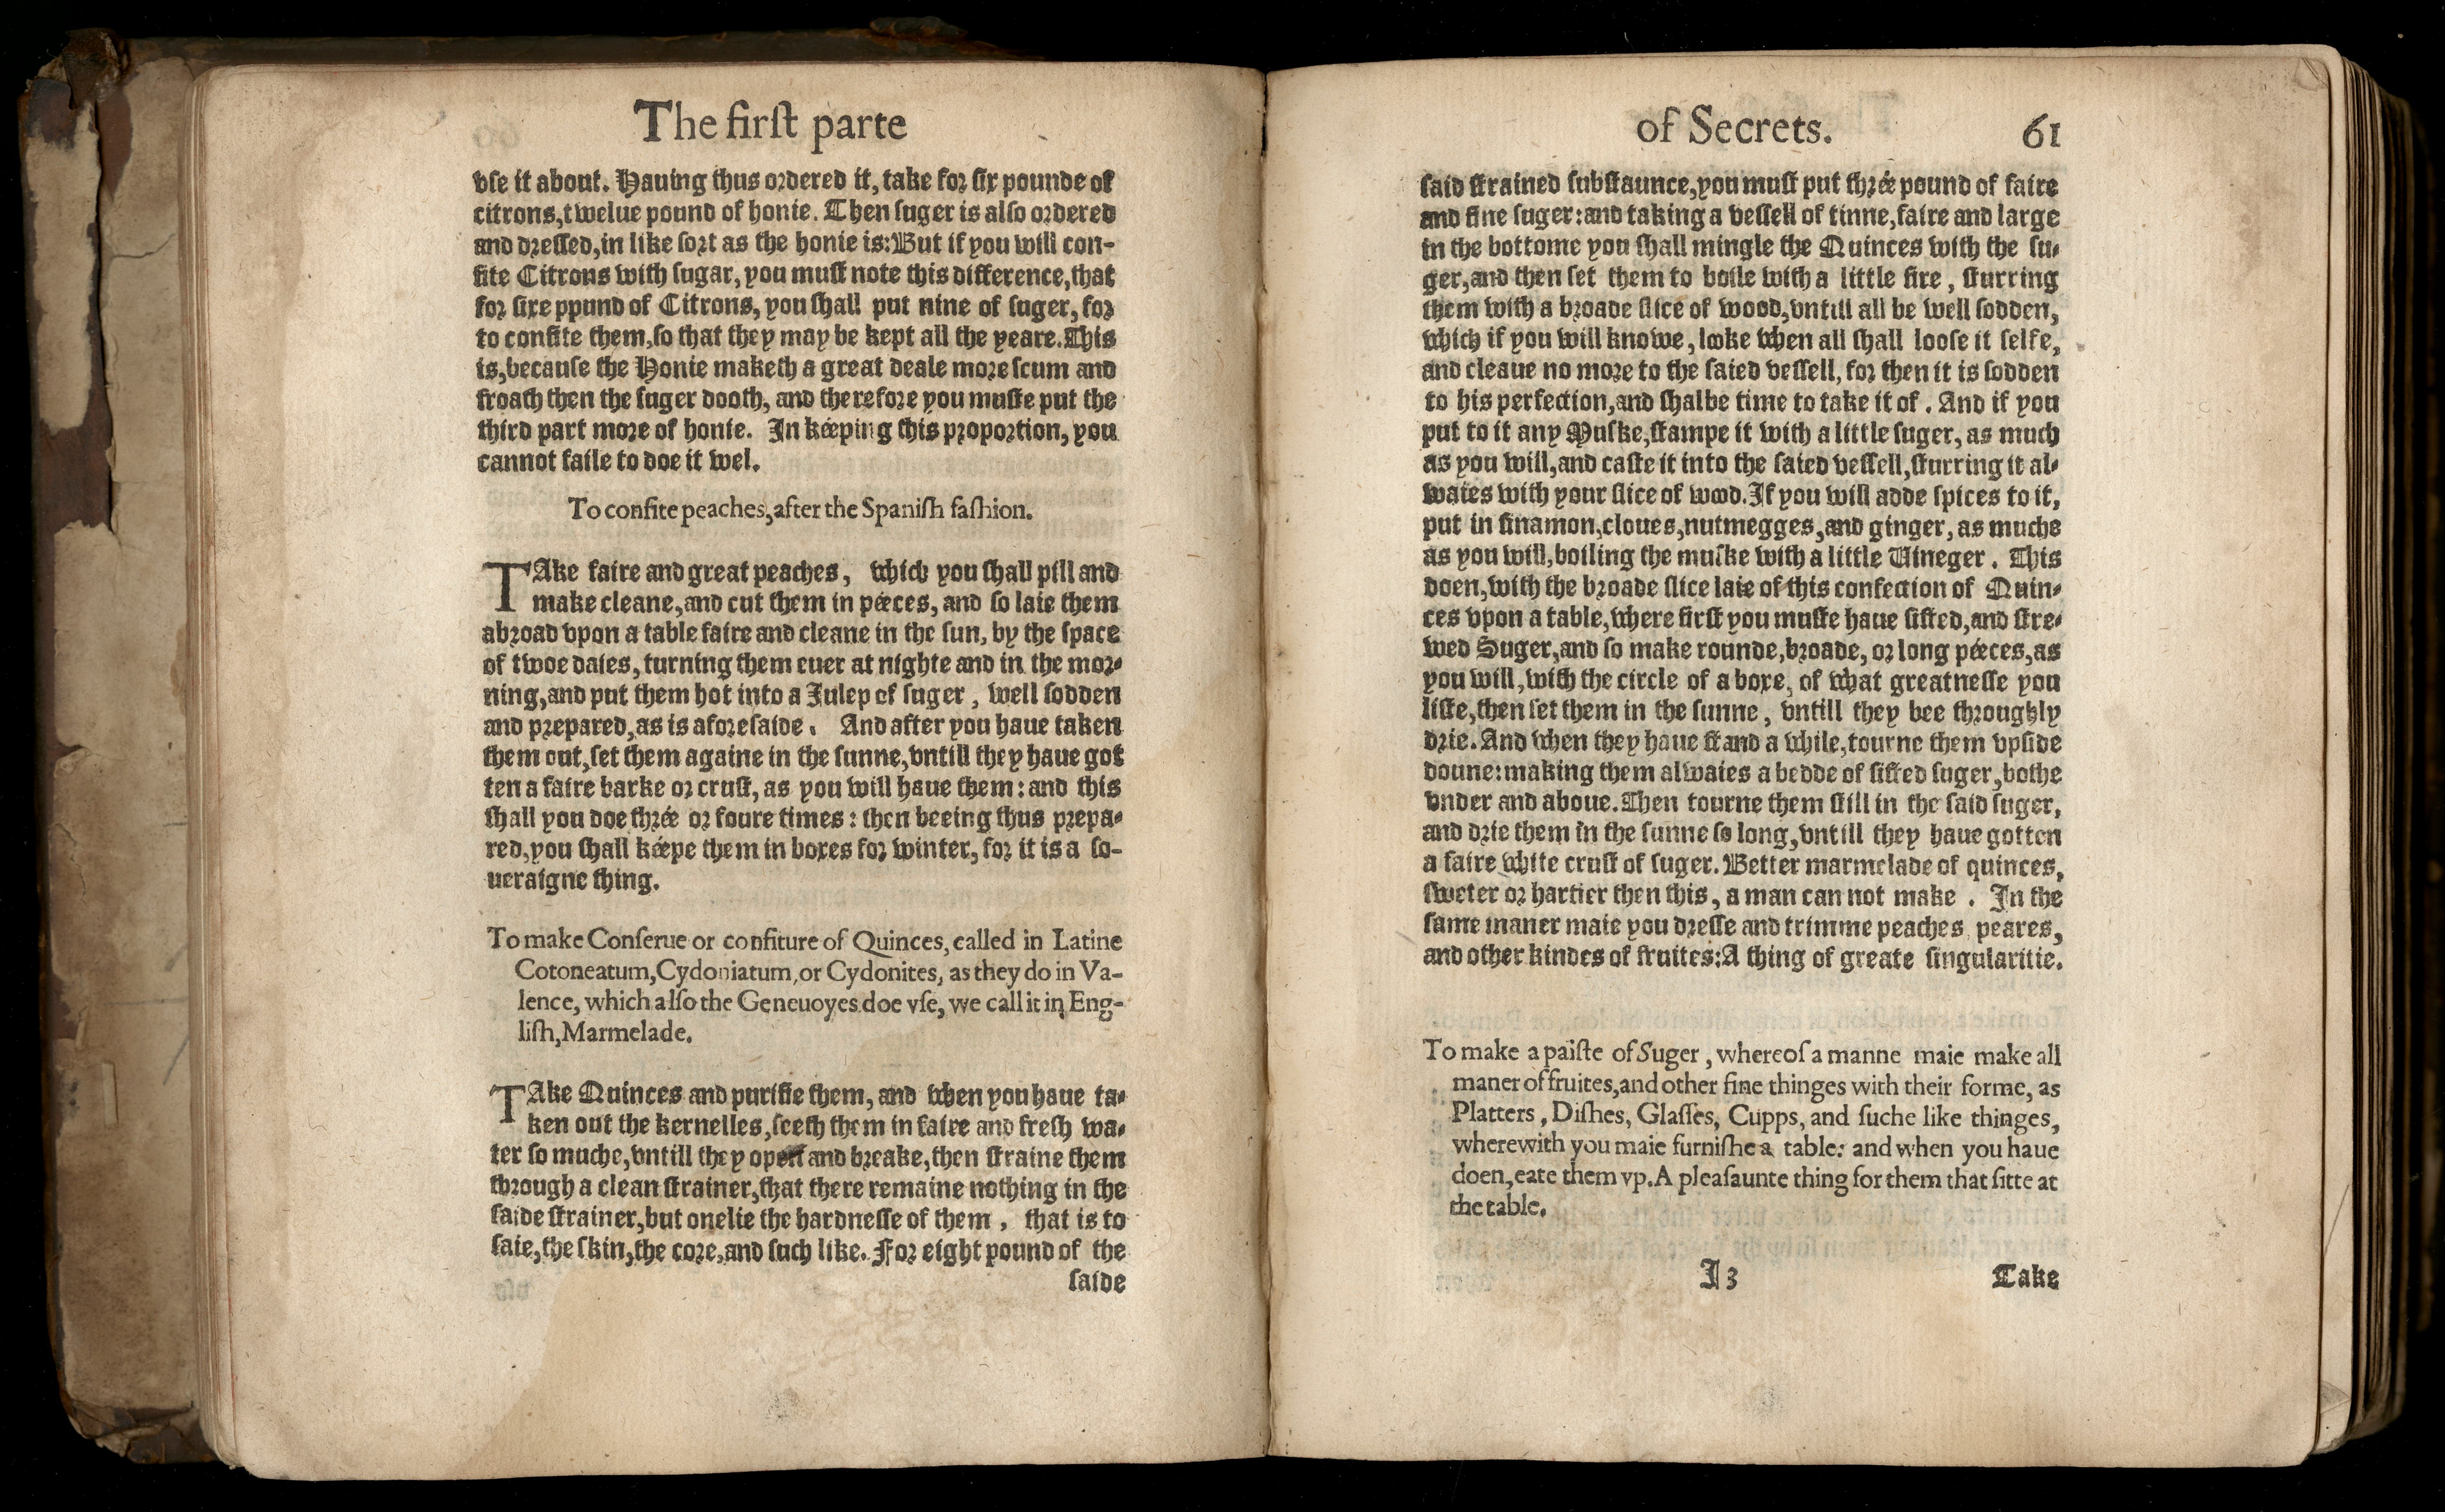 The firſt parte
vſe it about. Hauing thus ordered it, take for ſix pounde of
citrons, twelue pound of honie. Then ſuger is alſo ordered
and dreſſed, in like ſort as the honie is: But if you will con-
fite Citrons with ſugar, you muſt note this difference, that
for ſixe ppund of Citrons, you ſhall put nine of ſuger, for
to confite them, ſo that they may be kept all the yeare. This
is, becauſe the Honie maketh a great deale more ſcum and
froath then the ſuger dooth, and therefore you muſte put the
third part more of honie. In kéeping this proportion, you
cannot faile to doe it wel.
To confite peaches, after the Spaniſh faſhion.
TAke faire and great peaches, which you ſhall pill and
make cleane, and cut them in péeces, and ſo laie them
abroad vpon a table faire and cleane in the ſun, by the ſpace
of twoe daies, turning them euer at nighte and in the mor-
ning, and put them hot into a Julep of ſuger, well ſodden
and prepared, as is aforeſaide. And after you haue taken
them out, ſet them againe in the ſunne, vntill they haue got
ten a faire barke or cruſt, as you will haue them: and this
ſhall you doe thrée or foure times: then beeing thus prepa-
red, you ſhall kéepe them in boxes for winter, for it is a ſo-
ueraigne thing.
To make Conſerue or confiture of Quinces, called in Latine
Cotoneatum, Cydoniatum, or Cydonites, as they do in Va-
lence, which alſo the Geneuoyes doe vſe, we call it in Eng-
liſh, Marmelade.
TAke Quinces and purifie them, and when you haue ta-
ken out the kernelles, ſeeth them in faire and freſh wa-
ter ſo muche, vntill they open and breake, then ſtraine them
through a clean ſtrainer, that there remaine nothing in the
ſaide ſtrainer, but onelie the hardneſſe of them, that is to
ſaie, the ſkin, the core, and ſuch like. For eight pound of the
ſaide
of Secrets. 61
ſaid ſtrained ſubſtaunce, you muſt put thrée pound of faire
and fine ſuger: and taking a veſſell of tinne, faire and large
in the bottome you ſhall mingle the Quinces with the ſu-
ger, and then ſet them to boile with a little fire, ſturring
them with a broade ſlice of wood, vntill all be well ſodden,
which if you will knowe, looke when all ſhall looſe it ſelfe,
and cleaue no more to the ſaied veſſell, for then it is ſodden
to his perfection, and ſhalbe time to take it of. And if you
put to it any Muſke, ſtampe it with a little ſuger, as much
as you will, and caſte it into the ſaied veſſell, ſturring it al-
waies with your ſlice of wood. If you will adde ſpices to it,
put in ſinamon, cloues, nutmegges, and ginger, as muche
as you will, boiling the muſke with a little Uineger. This
doen, with the broade ſlice laie of this confection of Quin-
ces vpon a table, where firſt you muſte haue ſifted, and ſtre-
wed Suger, and ſo make rounde, broade, or long péeces, as
you will, with the circle of a boxe, of what greatneſſe you
liſte, then ſet them in the ſunne, vntill they bee throughly
drie. And when they haue ſtand a while, tourne them vpſide
doune: making them alwaies a bedde of ſifted ſuger, bothe
vnder and aboue. Then tourne them ſtill in the ſaid ſuger,
and drie them in the ſunne ſo long, vntill they haue gotten
a faire white cruſt of ſuger. Better marmelade of quinces,
ſweter or hartier then this, a man can not make. In the
ſame maner maie you dreſſe and trimme peaches peares,
and other kindes of fruites: A thing of greate ſingularitie.
To make a paiſte of Suger, whereof a manne maie make all
maner of fruites, and other fine thinges with their forme, as
Platters, Diſhes, Glaſſes, Cupps, and ſuche like thinges,
wherewith you maie furniſhe a table: and when you haue
doen, eate them vp. A pleaſaunte thing for them that ſitte at
the table.
I3 Take